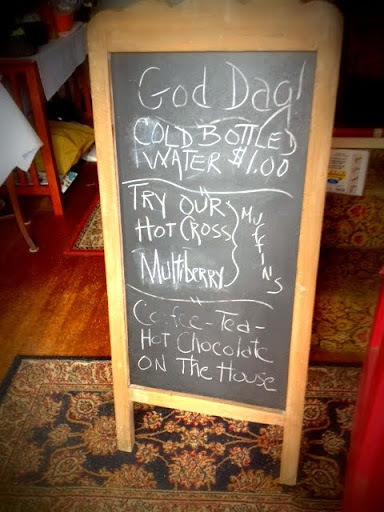 God Dag!
COLD BOTTLED
WATER $1.00
TRY OUR
HOT CROSS
Multiberry
MUFFINS
Coffee-Tea-
HOT Chocolate
ON The House